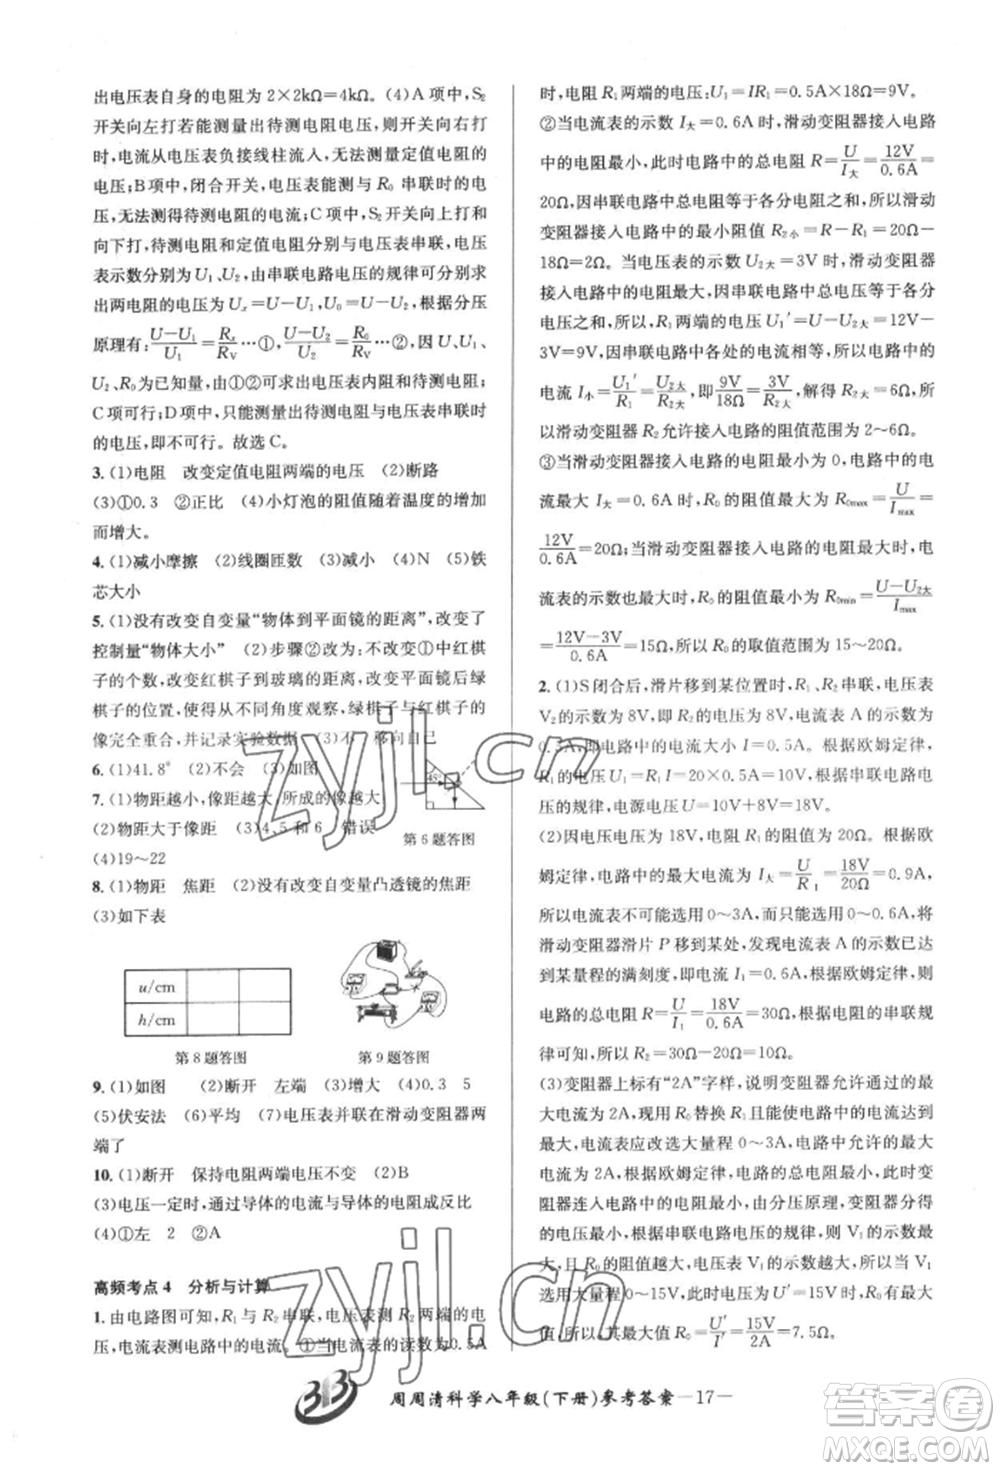 出电压表自身的电阻为 2×2kΩ=4kΩ。(4)A 项,S₂
开关向左打若能测量出待测电阻电压,则开关向右打
时,电流从电压表负接线柱流入,无法测量定值电阻的
电压;B项中,闭合开关,电压表能测与 R₀ 串联时的电
压,无法测得待测电阻的电流;C项中,S₂ 开关向上打和
向下打,待测电阻和定值电阻分别与电压表串联,电压
表示数分别为 U₁、U₂,由串联电路电压的规律可分别求
出两电阻的电压为 Uₓ=U-U₁,U₀=U-U₂,根据分压
原理有:(U-U₁)/U₁=Rₓ/R_V…①,(U-U₂)/U₂=R₀/R_V…②,因 U、U₁、
U₂、R₀ 为已知量,由①②可求出电压表内阻和待测电阻,
C 项可行;D项中,只能测量出待测电阻与电压表串联时
的电压,即不可行。故选 C。
3. (1)电阻 改变定值电阻两端的电压 (2)断路
(3)①0.3 ②正比 (4)小灯泡的阻值随着温度的增高
而增大。
4. (1)减小摩擦 (2)线圈匝数 (3)减小 (4)N (5)铁
芯大小
5. (1)没有改变自变量“物体到平面镜的距离”,改变了
控制量“物体大小” (2)步骤②改为:不改变①中红棋
子的个数,改变红棋子到玻璃的距离,改变平面镜后绿
棋子的位置,使得从不同角度观察,绿棋子与红棋子的
像完全重合,并记录实验数据 (3)不 移向自己
6. (1)41.8° (2)不会 (3)如图
7. (1)物距越小,像距越大,所成的像越大
(2)物距大于像距 (3)4、5 和 6 错误
第 6 题答图
(4)19～22
8. (1)物距 焦距 (2)没有改变自变量凸透镜的焦距
(3)如下表
u/cm
h/cm
第 8 题答图 第 9 题答图
9. (1)如图 (2)断开 左端 (3)增大 (4)0.3 5
(5)伏安法 (6)平均 (7)电压表并联在滑动变阻器两
端了
10. (1)断开 保持电阻两端电压不变 (2)B
(3)电压一定时,通过导体的电流与导体的电阻成反比
(4)①左 2 ②A
高频考点 4 分析与计算
1. 由电路图可知,R₁ 与 R₂ 串联,电压表测 R₂ 两端的电
压,电流表测电路中的电流。①当电流表的读数为0.5A
时,电阻 R₁ 两端的电压:U₁=IR₁=0.5A×18Ω=9V。
②当电流表的示数 I大=0.6A时,滑动变阻器接入电路
中的电阻最小,此时电路中的总电阻 R=U/I大=12V/0.6A=
20Ω,因串联电路中总电阻等于各分电阻之和,所以,滑动
变阻器接入电路中的最小阻值 R₂小=R-R₁=20Ω-
18Ω=2Ω;当电压表的示数 U₂大=3V时,滑动变阻器
接入电路中的电阻最大,因串联电路中总电压等于各分
电压之和,所以,R₁两端的电压 U₁'=U-U₂大=12V-
3V=9V,因串联电路中各处的电流相等,所以,电路中的
电流 I小=U₁'/R₁=U₂大/R₂大,即 9V/18Ω=3V/R₂大,解得:R₂大=6Ω,所
以滑动变阻器 R₂ 允许接入电路的阻值范围为 2～6Ω。
③当滑动变阻器接入电路的电阻最小为 0,电路中的电
流最大 I=0.6A时,R₀的阻值最大,R₀max=U/Imax=
12V/0.6A=20Ω;当滑动变阻器接入电路的电阻比较大,电
流表的示数也最大时,R₀的阻值最小,R₀min=(U-U₂大)/Imax
=(12V-3V)/0.6A=15Ω,所以 R₀的取值范围为 15～20Ω。
2. (1)S闭合后,滑片移到某位置时,R₁、R₂ 串联,电压表
V₂的示数为 8V,即 R₂ 的电压为 8V,电流表 A 的示数
为 0.5A,即电路中的电流大小 I=0.5A。根据欧姆定律,
R₁的电压为 U₁=IR₁=20×0.5A=10V,根据串联电路电
压的规律,电源电压 U=10V+8V=18V。
(2)因电压电压为 18V,电阻 R₁ 的阻值为 20Ω。根据欧
姆定律,电路中的最大电流为 I大=U/R₁=18V/20Ω=0.9A,
所以电流表有可能选用 0～3A,也可能选用 0～0.6A,将
滑动变阻器滑片 P 移到某处,发现电流表 A 的示数已达
到某量程的满刻度,即电流 I₁=0.6A,根据欧姆定律,则
电路的总电阻 R=U/I₁=18V/0.6A=30Ω,根据电阻的串联规
律可知:R₂=30Ω-20Ω=10Ω。
(3)变阻器上标有“2A”字样,说明变阻器允许通过的最大
电流为 2A,用R₀替换 R₁且能使电路中的最大电流
为 2A,电流表应改选大量程 0～3A,电路中允许的最大
电流为 2A,根据欧姆定律,电路的总电阻最小,此时变
阻器连入电路中的电阻最小,由分压原理,变阻器分得
的电压最小,根据串联电路电压的规律,则 V₁的示数最
大,且 V₁的示数不能超过最大电压,电压表 V₁ 应
选用大量程0～15V,V₁示数最大为U'=15V时,R₀有最大
值,所以,其最大值 R₀=U'/I'=15V/2A=7.5Ω。
周周清科学八年级(下册)参考答案—17—
zyjl.cn
zyjl.cn
答案圈
MXQE.COM